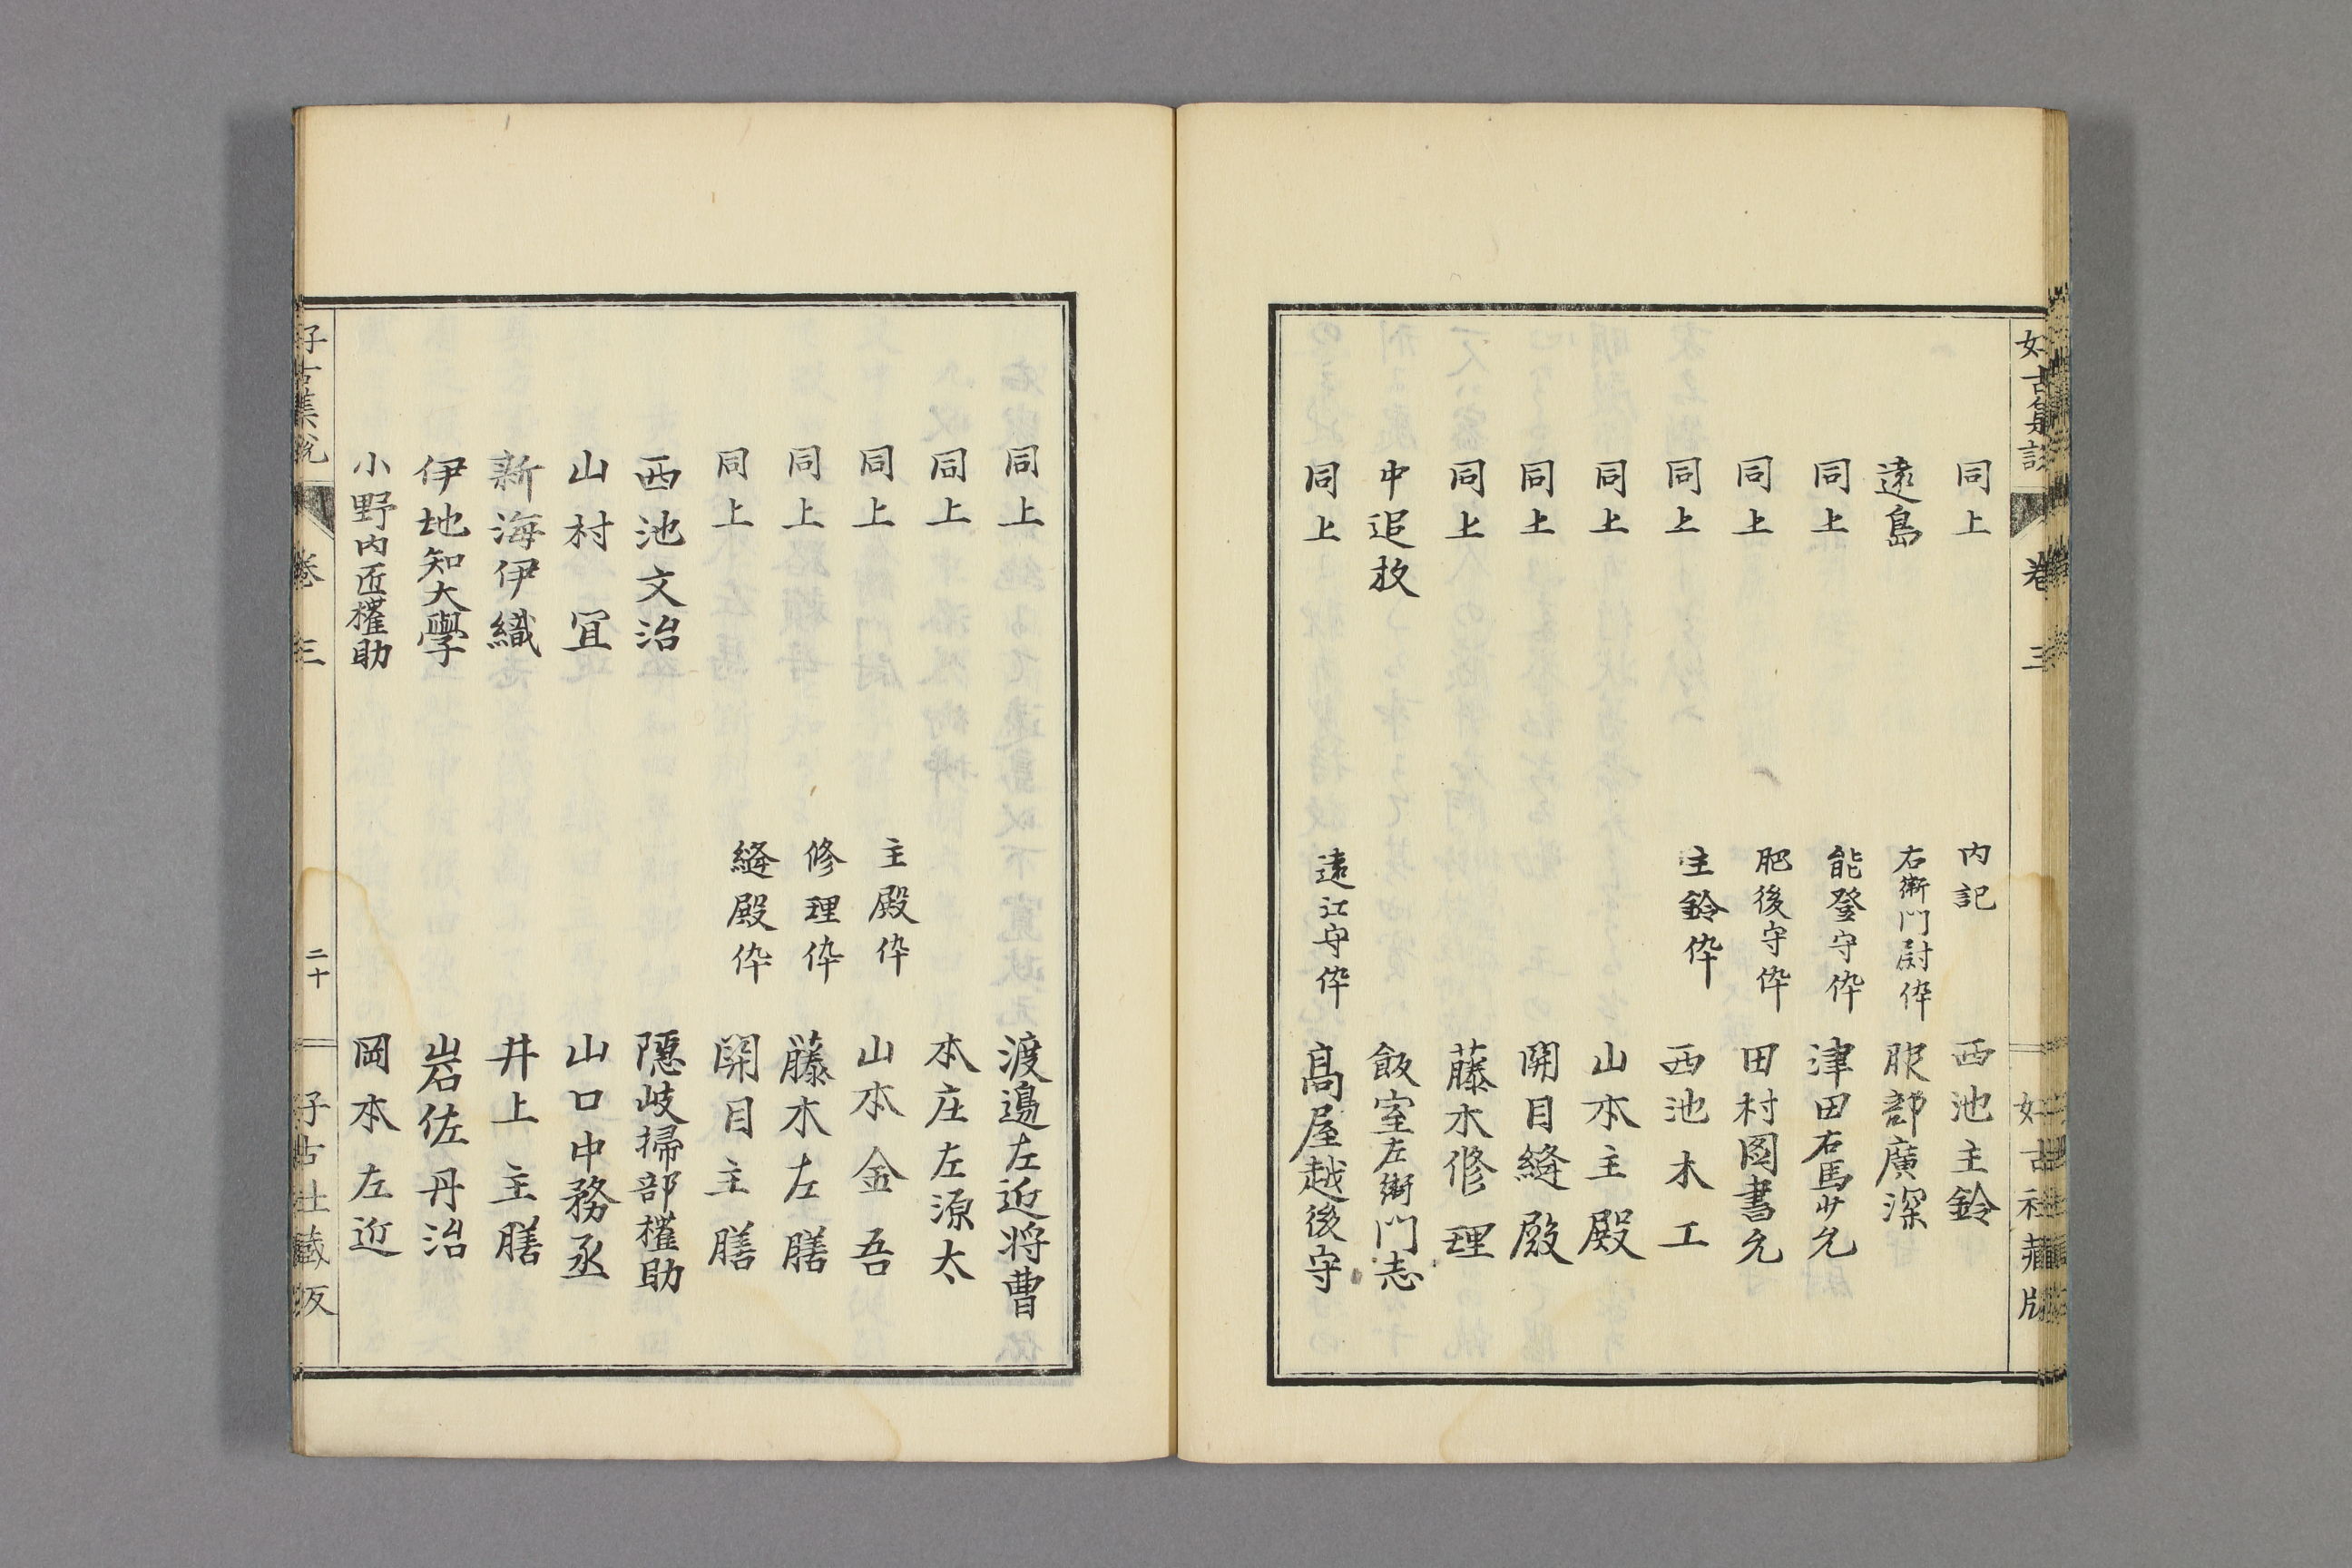 好古集説 卷三 好古社藏版
同上 内記 西池主鈴
遠島 右衛門尉伜 服部廣深
同上 能登守伜 津田右馬少允
同上 肥後守伜 田村図書允
同上 主鈴伜 西池木工
同上 山本主殿
同上 開目縫殿
同上 藤木修理
中追放 飯室左衛門志
同上 遠江守伜 髙屋越後守
同上 渡邉左近将曹
同上 本庄左源太
同上 主殿伜 山本金吾
同上 修理伜 藤木左膳
同上 縫殿伜 開目主膳
西池文治 隠岐掃部権助
山村冝 山口中務丞
新海伊織 井上主膳
伊地知大學 岩佐丹治
小野内匠権助 岡本左近
好古集説 卷三 二十 好古社藏版